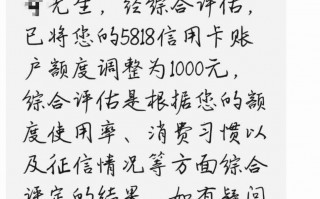 先生，经综合评估，
已将您的5818信用卡账
户额度调整为1000元，
综合评估是根据您的额
度使用率、消费习惯以
及征信情况等方面综合
评定的结果。如有疑问